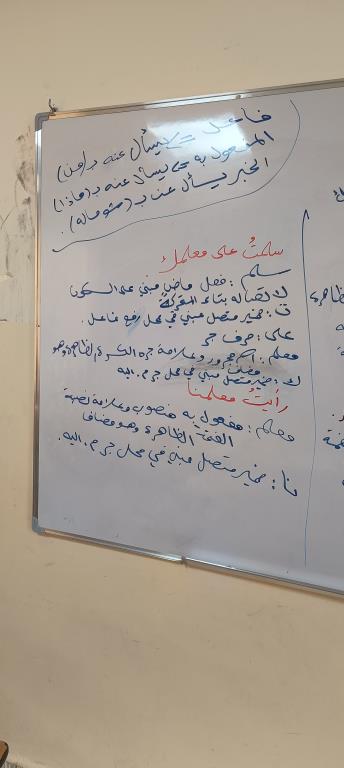 فاعل => يسأل عنه بـ (من)
المفعول به => يسأل عنه بـ (ماذا)
الخبر يسأل عن بـ (شو ماله).
سلمتُ على معلمك
سلم: فعل ماضي مبني على السكون
لاتصاله بتاء المتحركة
تُ: ضمير متصل مبني في محل رفع فاعل.
على: حرف جر
معلم: اسم مجرور وعلامة جره الكسرة الظاهرة وهو
مضاف
ك: ضمير متصل مبني في محل جر م. اليه
رأيتُ معلمنا
معلم: مفعول به منصوب وعلامة نصبه
الفتحة الظاهرة وهو مضاف
نا: ضمير متصل مبني في محل جر م. اليه.